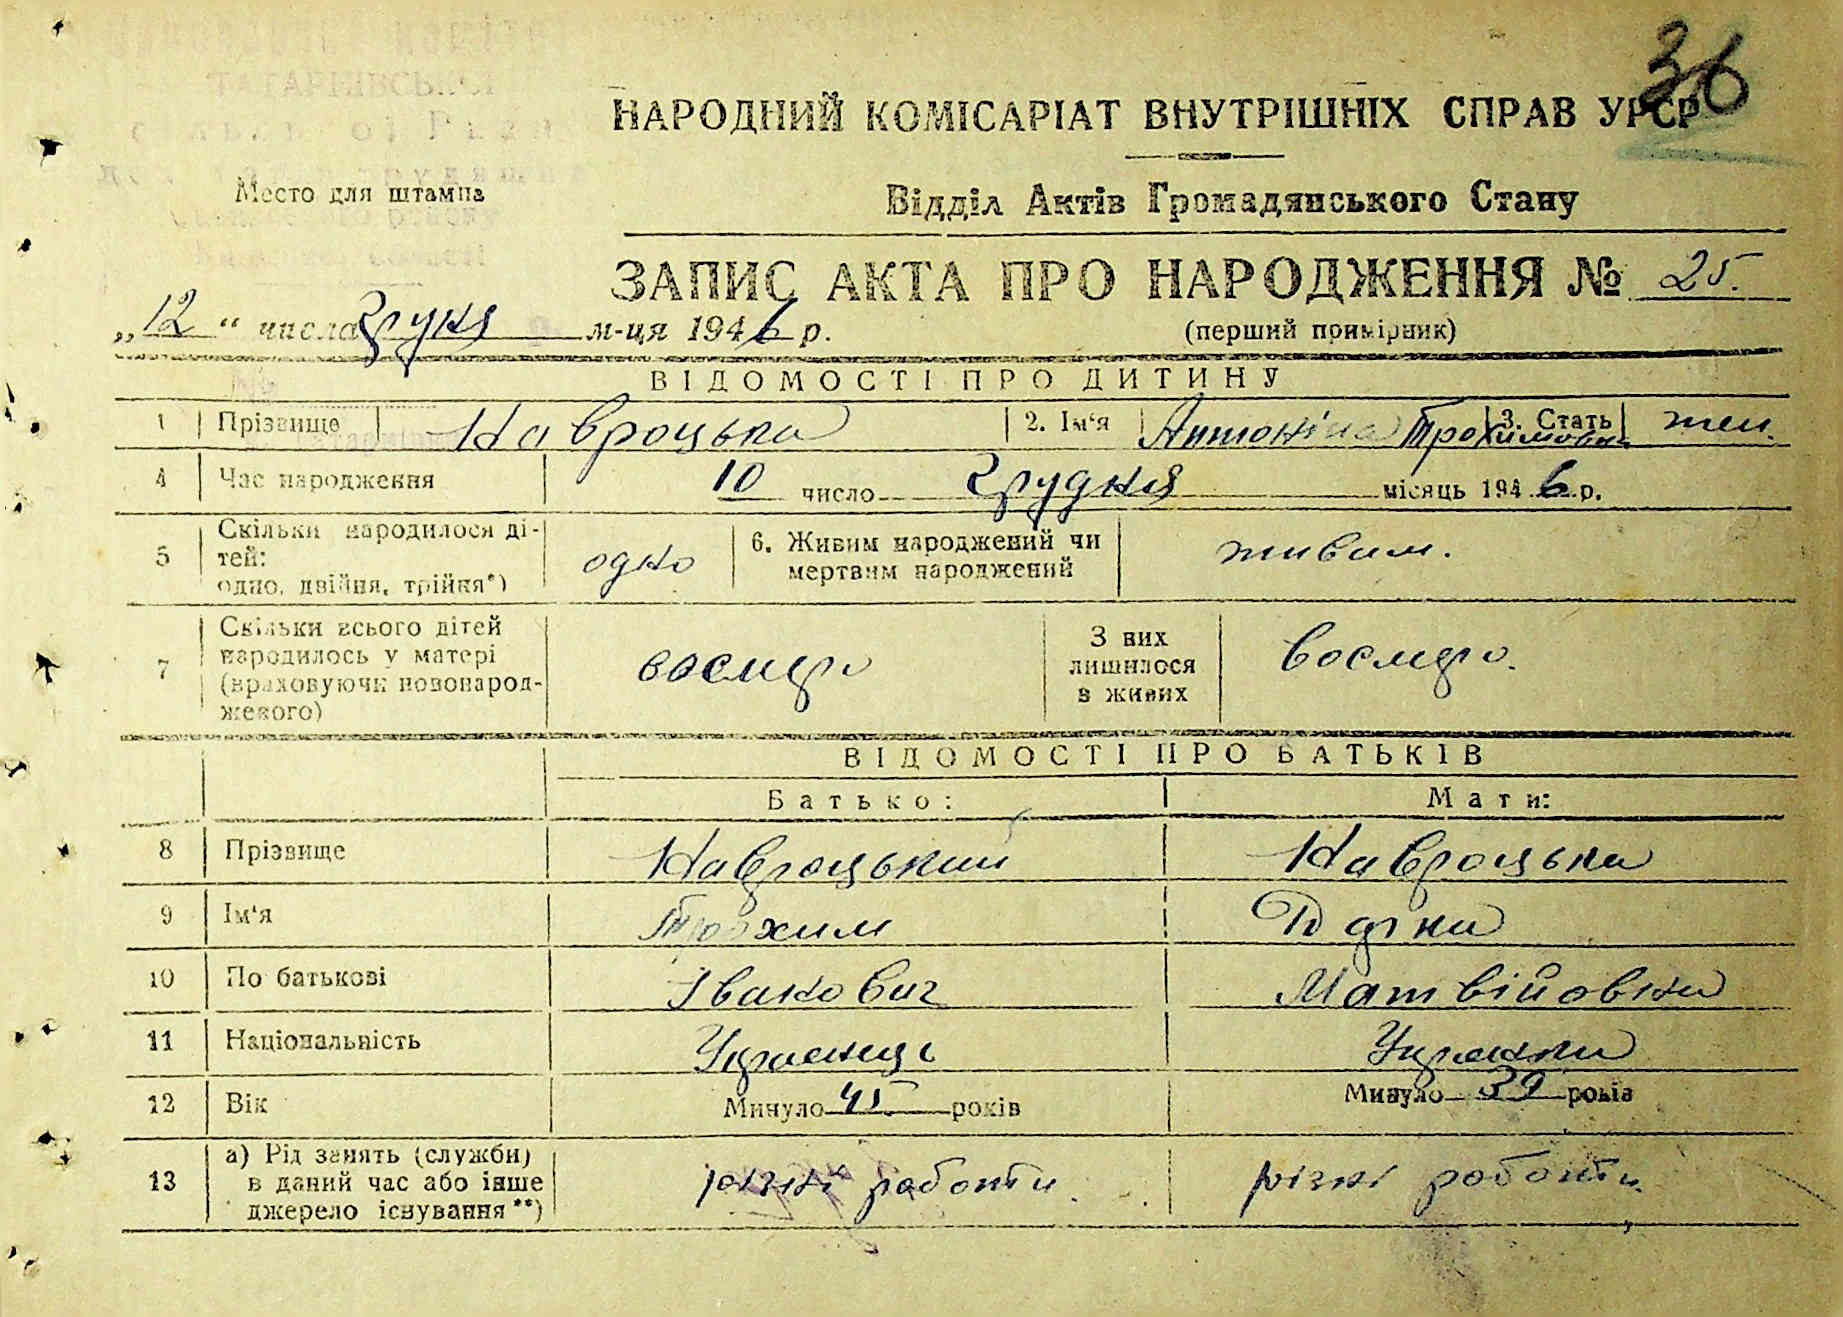 36
НАРОДНИЙ КОМІСАРІАТ ВНУТРІШНІХ СПРАВ УРСР
Место для штампа
Відділ Актів Громадянського Стану
ЗАПИС АКТА ПРО НАРОДЖЕННЯ № 25.
„12“ числа грудня м-ця 1946 р.
(перший примірник)
ВІДОМОСТІ ПРО ДИТИНУ
1 Прізвище Навроцька 2. Ім'я Антоніна Трохимовна 3. Стать жен.
4 Час народження 10 число грудня місяць 1946 р.
5 Скільки народилося ді-
тей:
одно, двійня, трійня*) одно 6. Живим народжений чи
мертвим народжений живим.
7 Скільки всього дітей
народилось у матері
(враховуючи новонарод-
женого) восмеро З них
лишилося
в живих восмеро.
ВІДОМОСТІ ПРО БАТЬКІВ
Батько: Мати:
8 Прізвище Навроцький Навроцька
9 Ім'я Трохим
10 По батькові Іванович Матвійовна
11 Національність Українець Українка
12 Вік Минуло 45 років Минуло 39 років
13 а) Рід занять (служби)
в даний час або інше
джерело існування**) різні роботи різні роботи.